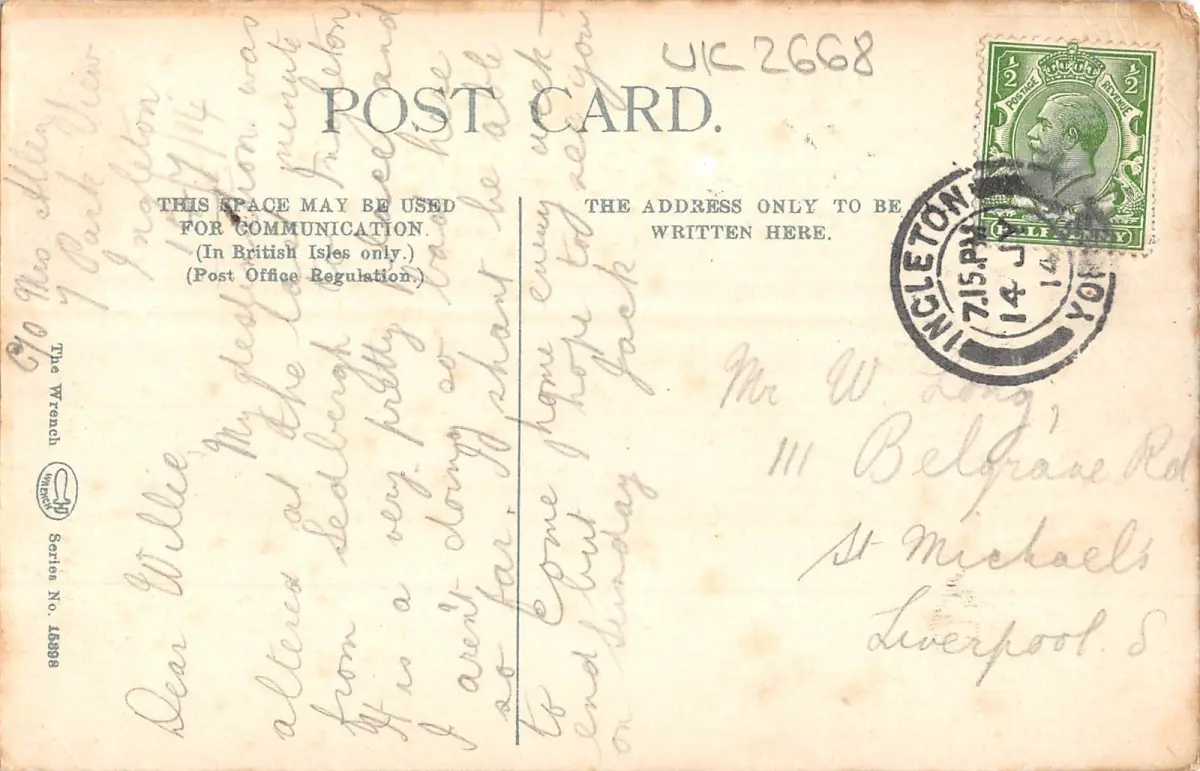 UK 2668
POST CARD.
THIS SPACE MAY BE USED
FOR COMMUNICATION.
(In British Isles only.)
(Post Office Regulation.)
THE ADDRESS ONLY TO BE
WRITTEN HERE.
½ ½
POSTAGE REVENUE
HALFPENNY
INGLETON
7.15.PM
14 JY
14
YO
The Wrench
WRENCH
Series No. 15398
c/o Mrs
7 Park View
Ingleton
14/7/14
Dear Willie
My destination was
altered at the last minute
from Sedbergh to Ingleton
It is a very pretty place and
I aren't doing so bad here
so far. I shant be able
to come home every week-
end but hope to see you
on Sunday Jack
Mr W. Long,
111 Belgrave Rd
St Michaels
Liverpool. S